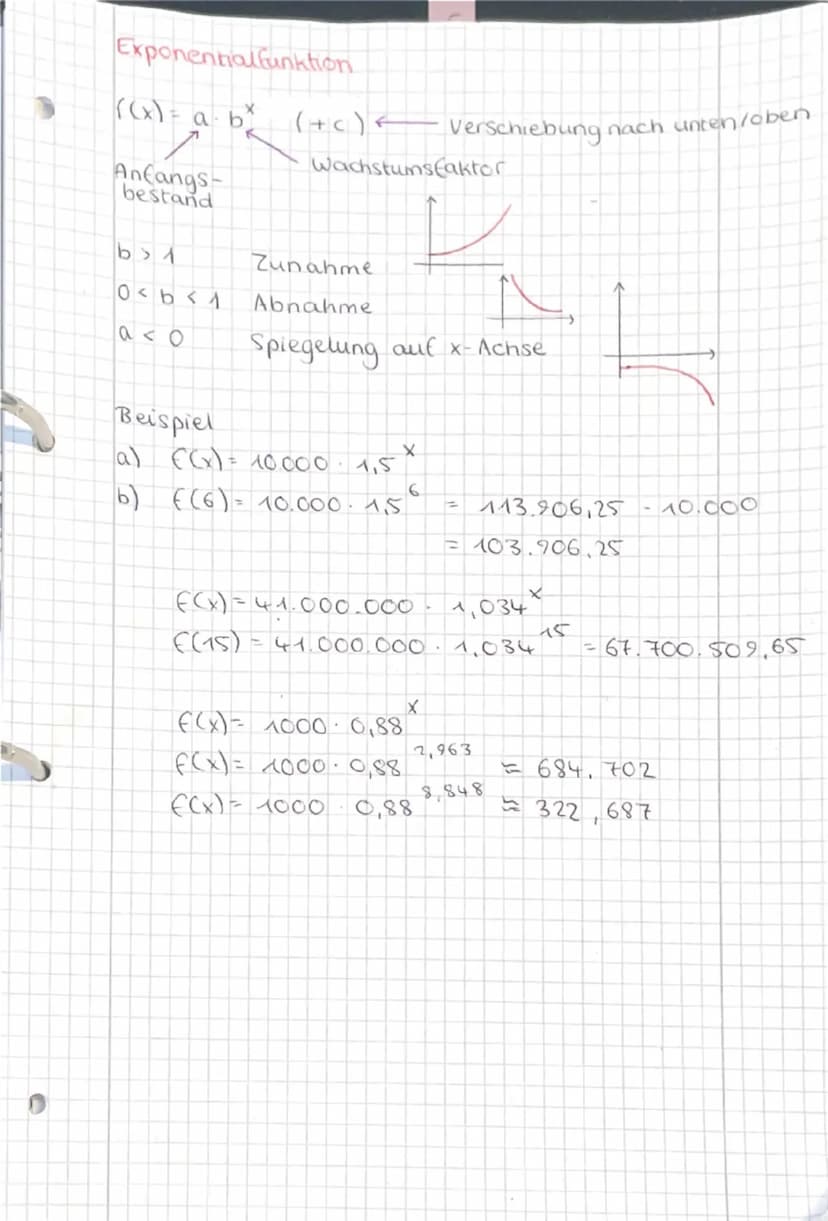 Exponentialfunktion
f(x) = a · b^x (+c) ← Verschiebung nach unten/oben
Wachstumsfaktor
Anfangs-
bestand
b > 1 Zunahme
0 < b < 1 Abnahme
a < 0 Spiegelung auf x-Achse
Beispiel
a) f(x) = 10.000 · 1,5^x
b) f(6) = 10.000 · 1,5^6 = 113.906,25 - 10.000
= 103.906,25
f(x) = 41.000.000 · 1,034^x
f(15) = 41.000.000 · 1,034^15 = 67.700.509,65
f(x) = 1000 · 0,88^x
f(x) = 1000 · 0,88^2,963 ≈ 684,702
f(x) = 1000 · 0,88^8,848 ≈ 322,687